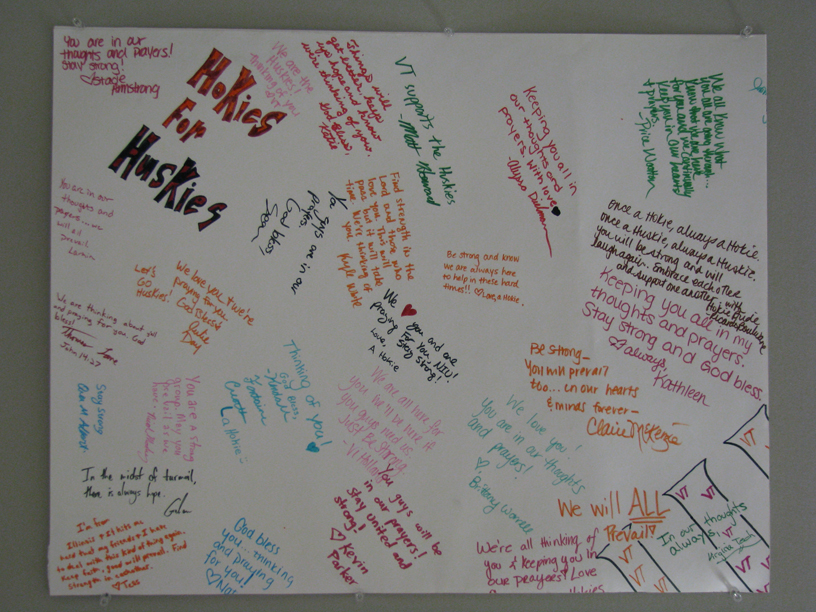 You are in our
thoughts and prayers!
Stay strong!
♡ Stacie
Armstrong
Hokies
For
Huskies
We are the
Huskies!
Thinking of you
VT
Things will
get better, keep
up hope and know
we're thinking of you.
God Bless,
Katie
VT supports the Huskies
- Matt
Keeping you all in
our thoughts and
prayers. With love ♥
- Alyssa
We all know what
you all are going through...
Know that we are here
for you and will continually
keep you in our hearts
+ prayers.
- Price
Once a Hokie, always a Hokie.
once a Huskie, always a Huskie.
you will be strong and will
laugh again. Embrace each other
and support one another. with
Hokie Pride,
You are in our
thoughts and
prayers... we
will all
prevail.
You guys are in our
prayers.
God bless,
Sean
Find strength in the
Lord and those who
love you. This will
pass but it will take
time. We're thinking of
you. Kyle White
Be strong and know
we are always here
to help in these hard
times!! ♡ Love, a Hokie.
Keeping you all in my
thoughts and prayers.
Stay strong and God bless.
♡ always,
Kathleen
Let's
GO
Huskies!
We love you & we're
praying for you
God Bless!
Katie
Day
We are thinking about y'all
and praying for you. God
bless!
John 14:27
We ♥ you and are
praying For You, NIU!
Stay strong!
Love,
A Hokie
Be strong—
You will prevail
too... in our hearts
& minds forever—
Claire McKenzie
Stay strong
You are a strong
group. May you
prevail as we
have.
Thinking of you!
God Bless
♥
La Hokie :)
We are all here for
you. We'll be here if
you guys need us
Just Be strong
- VT
We love you!
You are in our thoughts
and prayers!
♡
Brittany
In the midst of turmoil,
there is always hope.
You guys will be
in our prayers!
Stay united and
strong!
♡ Kevin
Parker
We will ALL
Prevail!
In our thoughts
always,
Virginia Tech
VT
VT
VT
VT
VT
VT
VT
I'm from
Illinois & it kills me
that my friends & I have
to deal with this kind of thing again.
Keep faith, good will prevail. Find
strength in each other.
♡ Tess
God bless
you... thinking
and praying
for you!
We're all thinking of
you & keeping you in
our prayers! Love